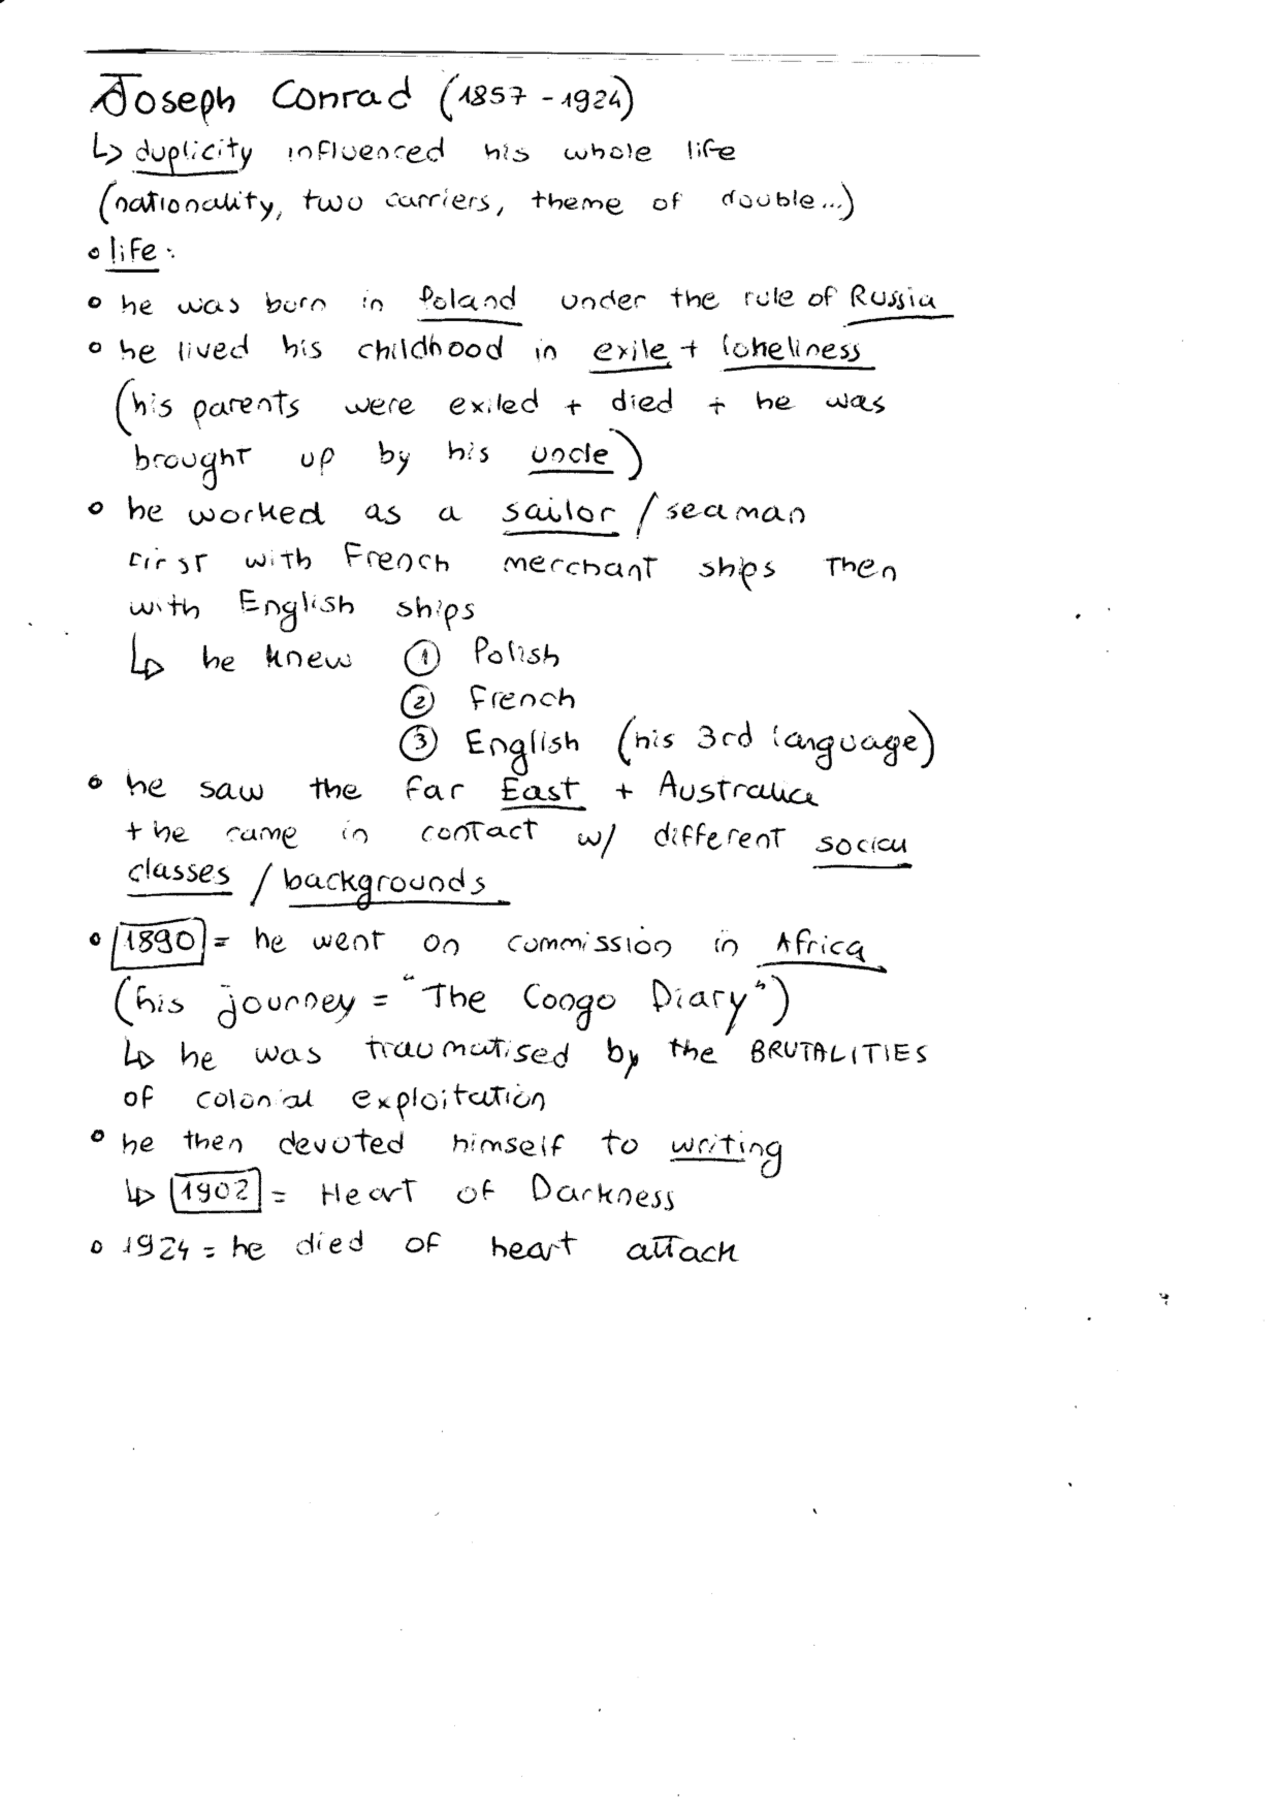 Joseph Conrad (1857 - 1924)
↳ duplicity influenced his whole life
(nationality, two carriers, theme of double...)
• life:
• he was born in Poland under the rule of Russia
• he lived his childhood in exile + loneliness
(his parents were exiled + died + he was
brought up by his uncle)
• he worked as a sailor / seaman
first with French merchant ships then
with English ships
↳ he knew ① Polish
② French
③ English (his 3rd language)
• he saw the far East + Australia
+ he came in contact w/ different social
classes / backgrounds
• 1890 = he went on commission in Africa
(his journey = "The Congo Diary")
↳ he was traumatised by the BRUTALITIES
of colonial exploitation
• he then devoted himself to writing
↳ 1902 = Heart of Darkness
• 1924 = he died of heart attack